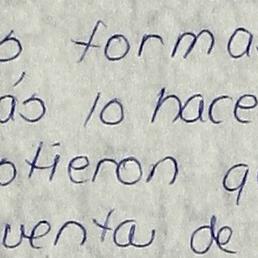 s forma
ás lo hace
tieron q
venta de